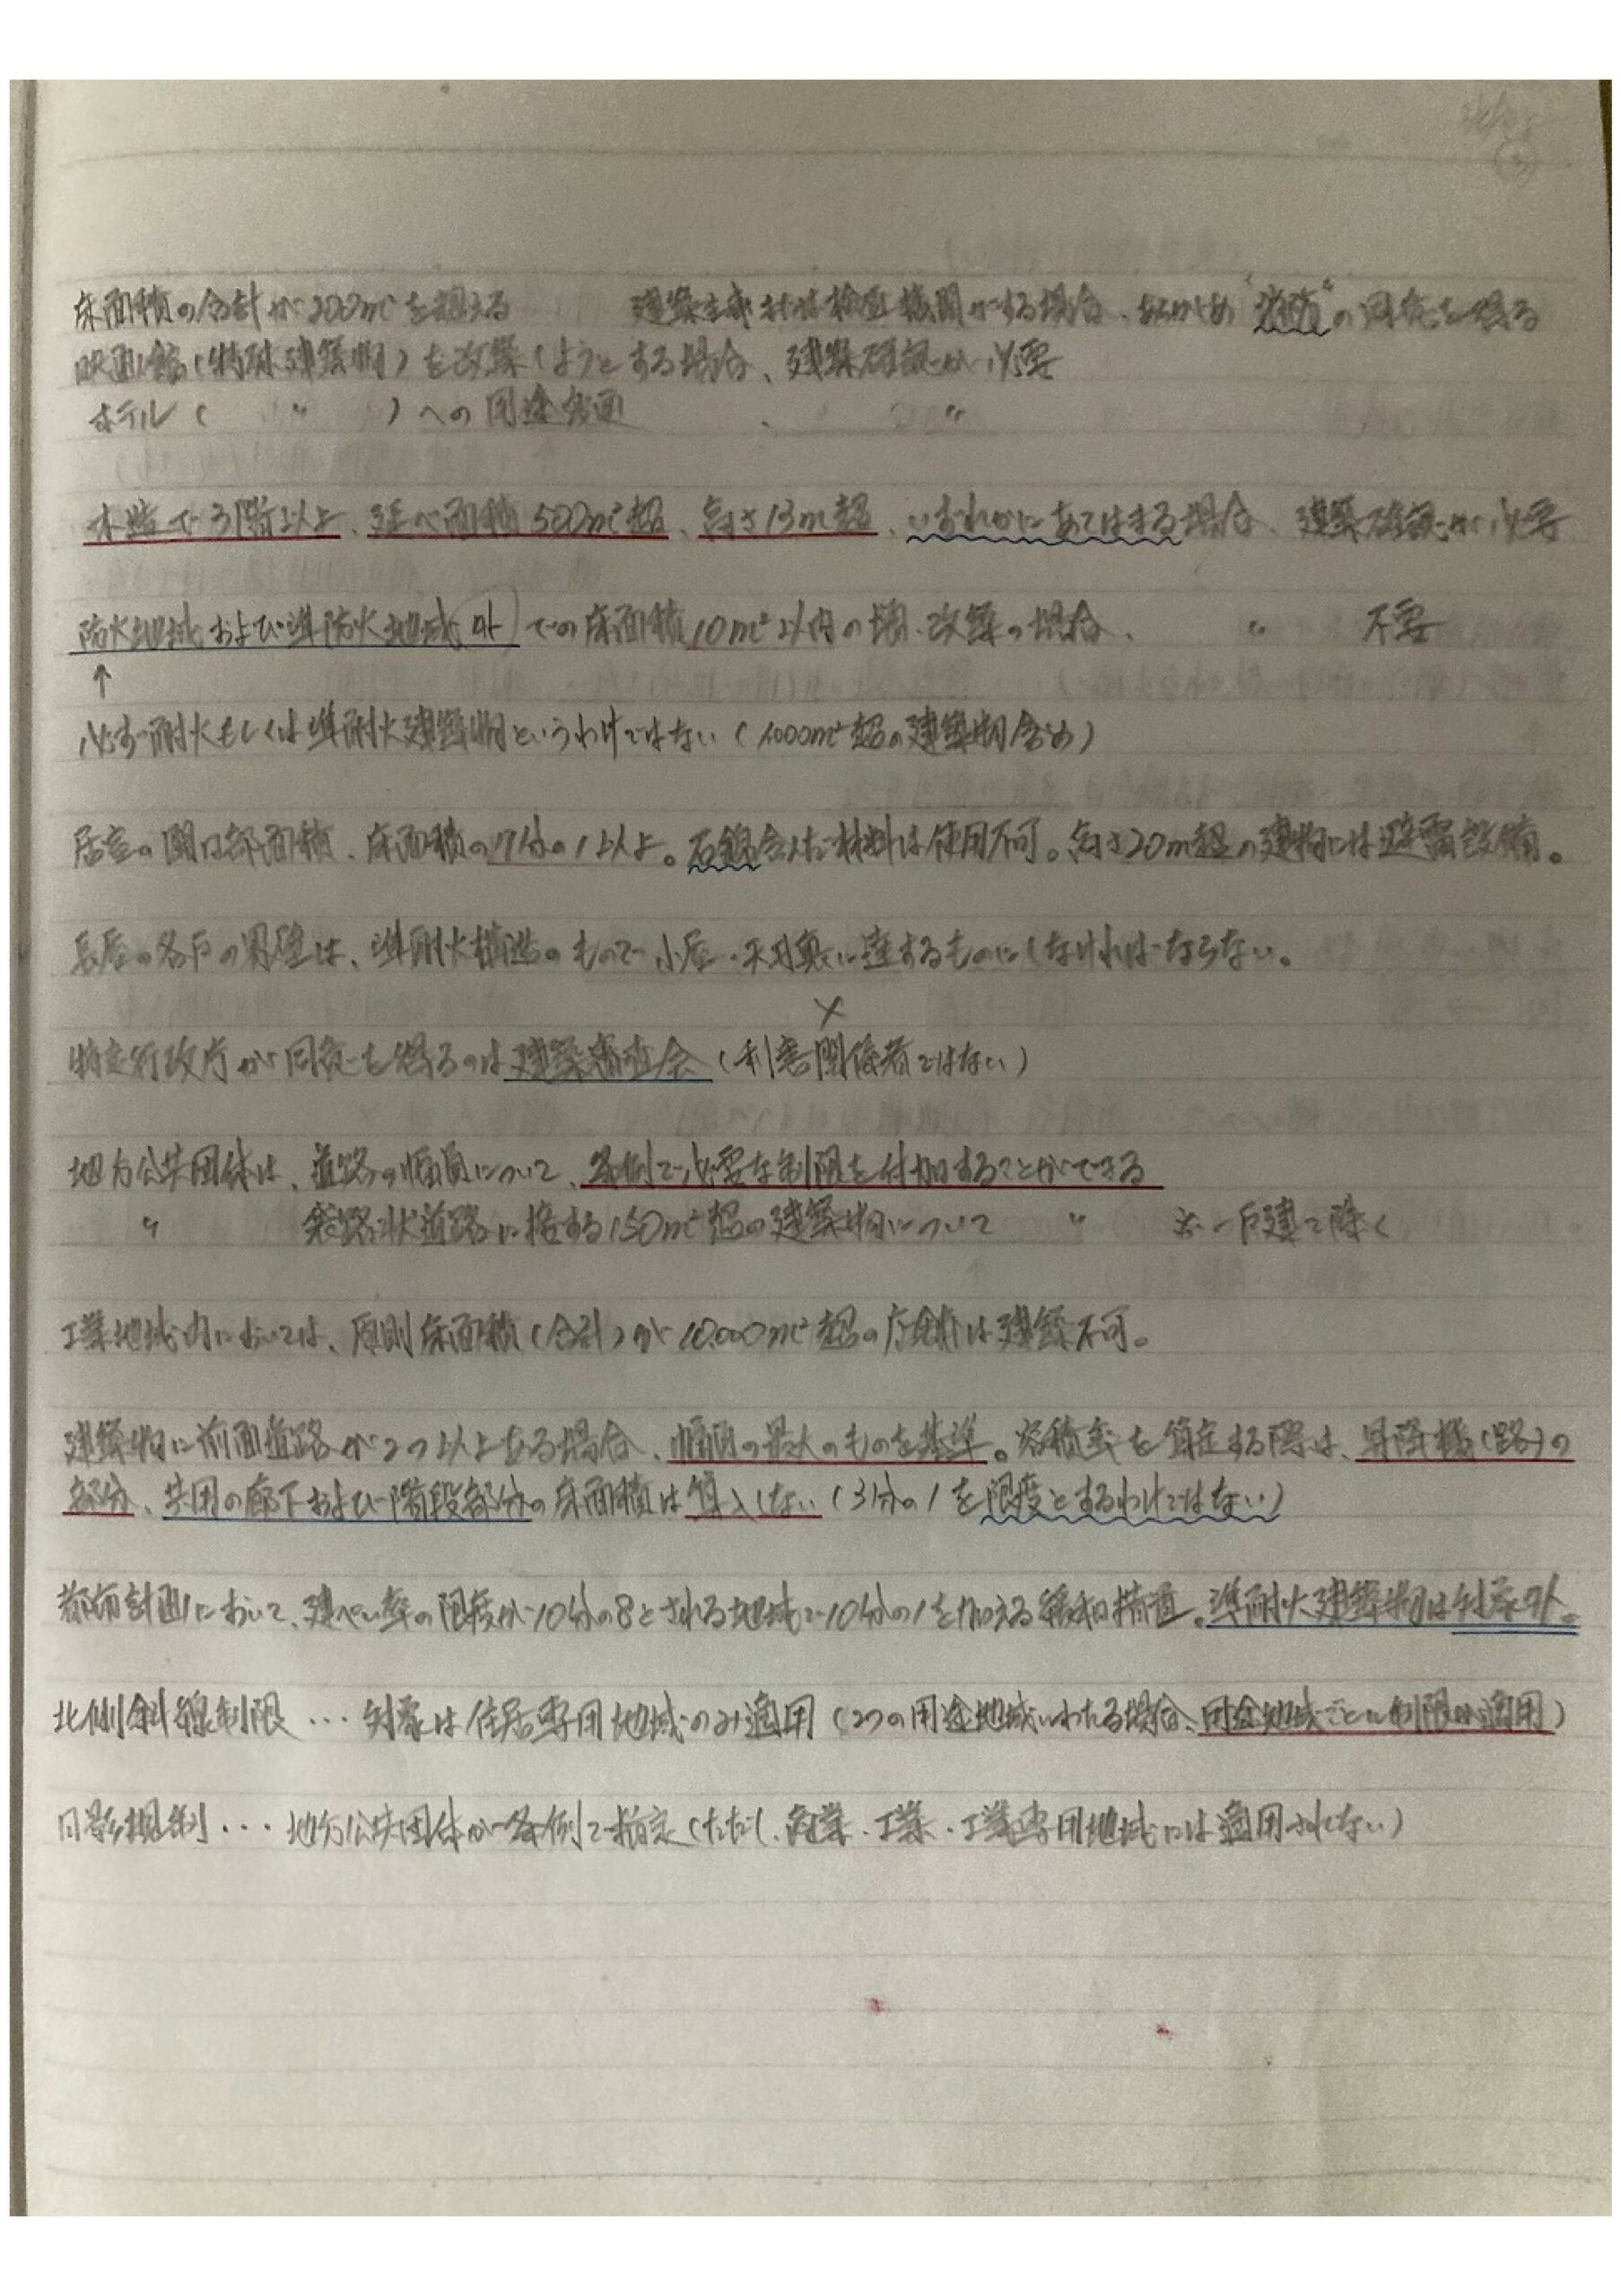 床面積の合計が200m²を超える　建築主事または検査機関がする場合、あらかじめ"消防"の同意を得る
映画館(特殊建築物)を改築しようとする場合、建築確認が必要
ホテル(　〃　)への用途変更　、　〃
木造で3階以上、延べ面積500m²超、高さ13m超、いずれかにあてはまる場合、建築確認が必要
防火地域および準防火地域外での床面積10m²以内の増・改築の場合、　〃　不要
↑
必ず耐火もしくは準耐火建築物というわけではない(1000m²超の建築物含め)
居室の開口部面積、床面積の7分の1以上。石綿含んだ材料は使用不可。高さ20m超の建物には避雷設備。
長屋の各戸の界壁は、準耐火構造のもので小屋・天井裏に達するものにしなければならない。
×
特定行政庁が同意を得るのは建築審査会(利害関係者ではない)
地方公共団体は、道路の幅員について、条例で必要な制限を付加することができる
〃　袋路状道路に接する150m²超の建築物について　〃　※一戸建て除く
工業地域内においては、原則床面積(合計)が10,000m²超の店舗は建築不可。
建築物に前面道路が2つ以上ある場合、幅員の最大のものを基準。容積率を算定する際は、昇降機(路)の
部分、共用の廊下および階段部分の床面積は算入しない(3分の1を限度とするわけではない)
都市計画において、建ぺい率の限度が10分の8とされる地域で10分の1を加える緩和措置。準耐火建築物は対象外。
北側斜線制限…対象は住居専用地域のみ適用(2つの用途地域にわたる場合、用途地域ごとに制限が適用)
日影規制…地方公共団体が条例で指定(ただし、商業・工業・工業専用地域には適用されない)